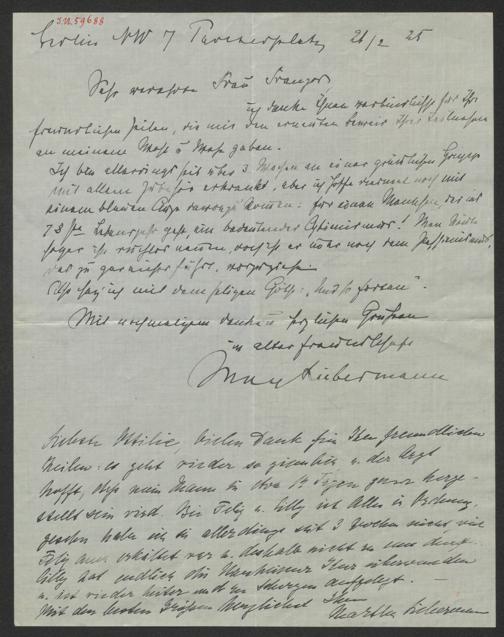 I.N. 59688
Berlin NW 7 Pariserplatz 26/2 25
Sehr verehrte Frau Franzos,
ich danke Ihnen verbindlichst für Ihre
freundlichen Zeilen, die mir den erneuten Beweis Ihrer Teilnahme
an meinem Wohl u Wehe gaben.
Ich bin allerdings seit über 3 Wochen an einer gründlichen Grippe
mit allem Zubehör erkrankt, aber ich hoffe diesmal noch mit
einem blauen Auge davonzukommen: für einen Menschen, der ins
78ste Lebensjahr geht, ein bedeutender Optimismus! Man
sogar ihn nennen, doch ist er immer noch dem Pessimismus,
der zu gar nichts führt, vorzuziehn.
Also sag' ich mit dem seligen Götz: „Und so fortan".
Mit nochmaligem Danke u herzlichen Grüßen
in alter Freundschaft
Max Liebermann
Liebste Ottilie, vielen Dank für Ihre freundlichen
Zeilen. es geht wieder so ziemlich u. der Arzt
hofft, dass mein Mann in etwa 14 Tagen ganz herge-
stellt sein wird. Bei Felix u. Lilly ist Alles in Ordnung,
gesehen haben wir sie allerdings seit 3 Wochen nicht weil
Felix auch erkältet war u. deshalb nicht zu uns
Lilly hat endlich die überwunden
u. ist wieder heiter und zu Scherzen aufgelegt. —
Mit den besten Grüßen herzlichst Ihre
Martha Liebermann